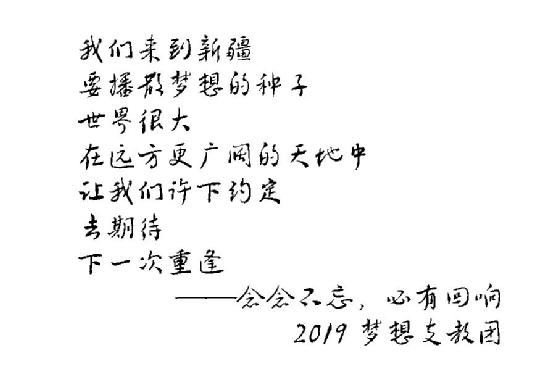 我们来到新疆
要播散梦想的种子
世界很大
在远方更广阔的天地中
让我们许下约定
去期待
下一次重逢
——念念不忘，必有回响
2019 梦想支教团